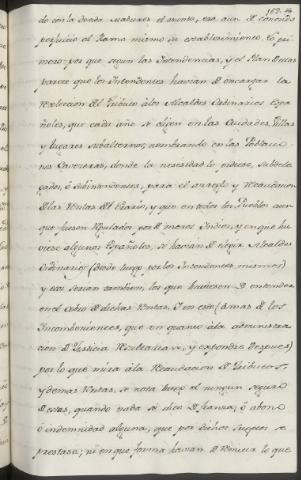 do con la donda madurez el asunto, era aun de conocido
perjuicio el Rama mismo su establecimiento. Lo pri-
mero: por que segun las Intendencias, y el Plan de ellas
parece que los Intendentes havian de encargar la
Recaudacion del tributo à los Alcaldes Ordinarios Espa-
ñoles, que cada año se eligen en las Ciudades, Villas
y lugares subalternos, nombrando en las Poblacio-
nes Cavezeras, donde la necesidad lo pidiese, subdele-
gados, ò subintendentes, para el arreglo y Recaudacion
de las Rentas del Erario, y que en todos los Pueblos aun-
que fuesen Reputados por de meros Indios, y en que hu-
viese algunos Españoles, se havian de elegir Alcaldes
Ordinarios (desde luego por los Intendentes mismos)
y esos serian tambien los que huviesen de entender
en el cobro de dichas Rentas. Y en esto (à mas de los
Inconvenientes, que en quanto à la administra-
cion de Justicia y expondrè despues)
por lo que mira à la Recaudacion de tributos,
y demas Rentas, se nota luego el ningun seguro
de estas, quando nada se dice de fianza, ò abono
ò indemnidad alguna, que por dichos sugetos se
prestase; ni en que forma havian de lo que